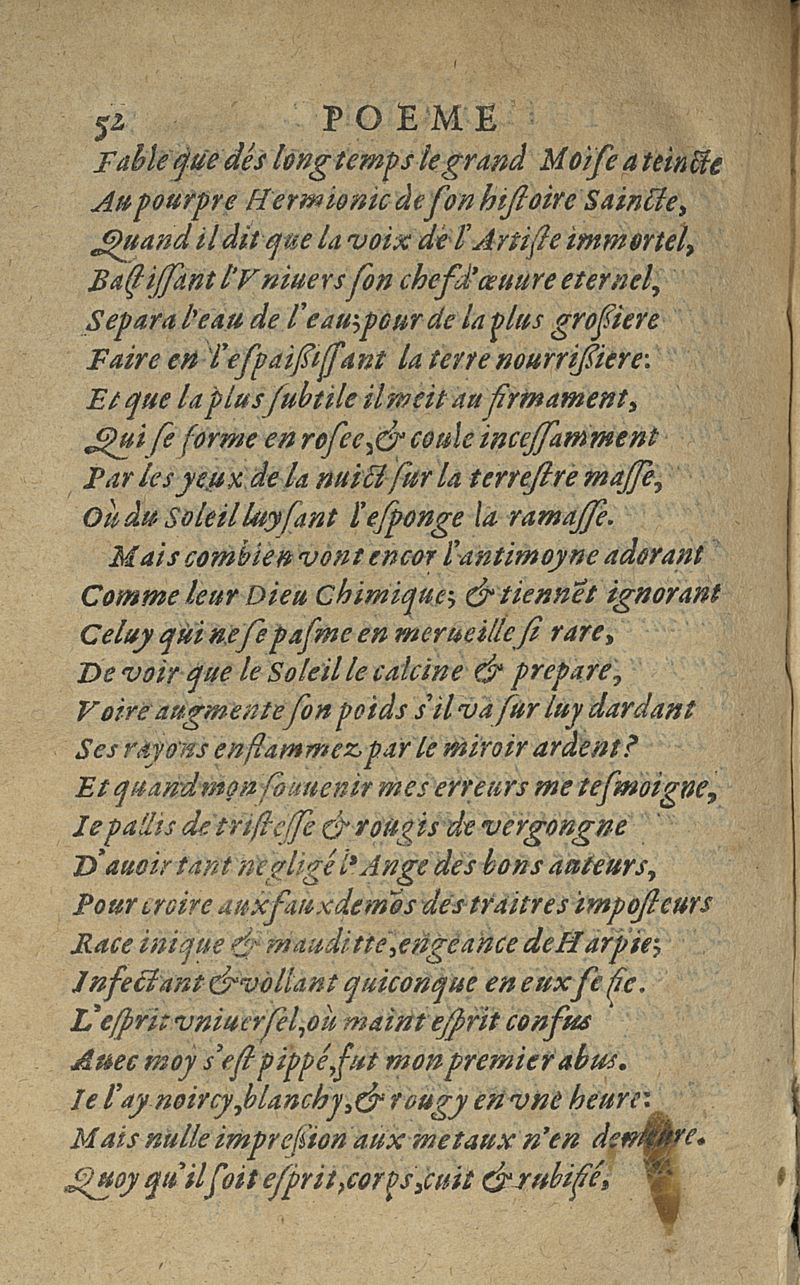 52 POEME
Fable que dés long temps le grand Moïſe a teincte
Au pourpre Hermionic de ſon hiſtoire Saincte,
Quand il dit que la voix de l'Artiſte immortel,
Baſtiſſant l'Vniuers ſon chef d'œuure eternel,
Separa l'eau de l'eau; pour de la plus groſsiere
Faire en l'eſpaiſsiſſant la terre nourriſsiere:
Et que la plus ſubtile il meit au firmament,
Qui ſe forme en roſee, & coule inceſſamment
Par les yeux de la nuict ſur la terreſtre maſſe,
Où du Soleil luyſant l'eſponge la ramaſſe.
Mais combien vont encor l'antimoyne adorant
Comme leur Dieu Chimique; & tiennēt ignorant
Celuy qui ne ſe paſme en merueille ſi rare,
De voir que le Soleil le calcine & prepare,
Voire augmente ſon poids s'il va ſur luy dardant
Ses rayons enflammez par le miroir ardent?
Et quand mon ſouuenir mes erreurs me teſmoigne,
Ie pallis de triſteſſe & rougis de vergongne
D'auoir tant negligé l'Ange des bons auteurs,
Pour croire aux faux demōs des traitres impoſteurs
Race inique & mauditte, engeance de Harpie;
Infectant & vollant quiconque en eux ſe fie.
L'eſprit vniuerſel, où maint eſprit confus
Auec moy s'eſt pippé, fut mon premier abus.
Ie l'ay noircy, blanchy, & rougy en vne heure:
Mais nulle impreſsion aux metaux n'en demeure.
Quoy qu'il ſoit eſprit, corps, cuit & rubifié,